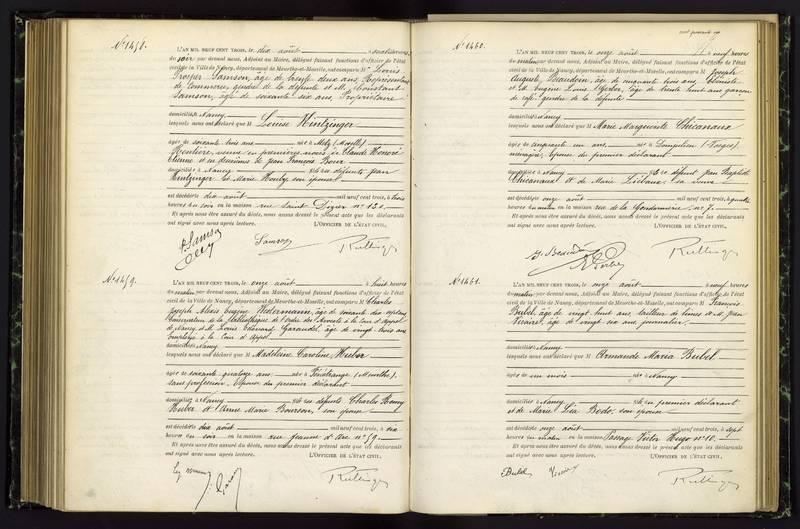 N° 1458.
L'AN MIL NEUF CENT TROIS, le dix août à
du soir par devant nous, Adjoint au Maire, délégué faisant fonctions d'officier de l'état
civil de la Ville de Nancy, département de Meurthe-et-Moselle, ont comparu M Louis
Prosper Samson, âgé de trente deux ans, Représentant
de commerce, gendre de la défunte et M. Constant
Samson, âgé de soixante six ans, Propriétaire
domiciliés Nancy
lesquels nous ont déclaré que M Louise Hintzinger
âgée de soixante trois ans née à Metz (Moselle)
Rentière, veuve en premières noces de Claude Honoré
Etienne et en deuxièmes de Jean François Bour
domiciliée à Nancy fille des défunts Jean
Hintzinger et Marie son épouse
est décédée dix août mil neuf cent trois, à trois
heures du soir en la maison rue Saint Dizier n° 130
Et après nous être assuré du décès, nous avons dressé le présent acte que les déclarants
ont signé avec nous après lecture. L'OFFICIER DE L'ÉTAT CIVIL,
Samson
N° 1459.
L'AN MIL NEUF CENT TROIS, le onze août à huit heures
du matin par devant nous, Adjoint au Maire, délégué faisant fonctions d'officier de l'état
civil de la Ville de Nancy, département de Meurthe-et-Moselle, ont comparu M Charles
Joseph Alexis Eugène âgé de soixante dix sept ans
de la Bibliothèque de l'ordre des Avocats à la Cour d'Appel
de Nancy et M. Louis Edouard Garaudel, âgé de vingt trois ans
Employé à la Cour d'Appel
domiciliés Nancy
lesquels nous ont déclaré que M Madeleine Caroline Huber
âgée de soixante quatorze ans née à Fénétrange (Meurthe),
sans profession, épouse du premier déclarant
domiciliée à Nancy fille des défunts Charles Henry
Huber et Anne Marie Bourson, son épouse
est décédée dix août mil neuf cent trois, à six
heures du soir en la maison rue Jeanne d'Arc n° 59.
Et après nous être assuré du décès, nous avons dressé le présent acte que les déclarants
ont signé avec nous après lecture. L'OFFICIER DE L'ÉTAT CIVIL,
N° 1460.
L'AN MIL NEUF CENT TROIS, le onze août à neuf heures
du matin par devant nous, Adjoint au Maire, délégué faisant fonctions d'officier de l'état
civil de la Ville de Nancy, département de Meurthe-et-Moselle, ont comparu M Joseph
Auguste Beaudoin, âgé de cinquante trois ans, Ebéniste
et M. Eugène Louis âgé de trente huit ans garçon
de café, gendre de la défunte
domiciliés Nancy
lesquels nous ont déclaré que M Marie Marguerite Chicanaux
âgée de cinquante un ans née à (Vosges)
ménagère, épouse du premier déclarant
domiciliée à Nancy fille de défunt Jean Baptiste
Chicanaux et de Marie sa veuve
est décédée onze août mil neuf cent trois, à quatre
heures du matin en la maison rue de la Gendarmerie n° 7.
Et après nous être assuré du décès, nous avons dressé le présent acte que les déclarants
ont signé avec nous après lecture. L'OFFICIER DE L'ÉTAT CIVIL,
N° 1461.
L'AN MIL NEUF CENT TROIS, le onze août à neuf heures
du matin par devant nous, Adjoint au Maire, délégué faisant fonctions d'officier de l'état
civil de la Ville de Nancy, département de Meurthe-et-Moselle, ont comparu M François
Bubel, âgé de vingt huit ans, tailleur de limes et M. Jean
âgé de vingt six ans journalier
domiciliés Nancy
lesquels nous ont déclaré que M Armande Maria Bubel
âgée de un mois née à Nancy
domiciliée à Nancy fille du premier déclarant
et de Marie Léa Bedo, son épouse
est décédée onze août mil neuf cent trois, à sept
heures du matin en la maison Passage Victor Hugo n° 10.
Et après nous être assuré du décès, nous avons dressé le présent acte que les déclarants
ont signé avec nous après lecture. L'OFFICIER DE L'ÉTAT CIVIL,
Bubel